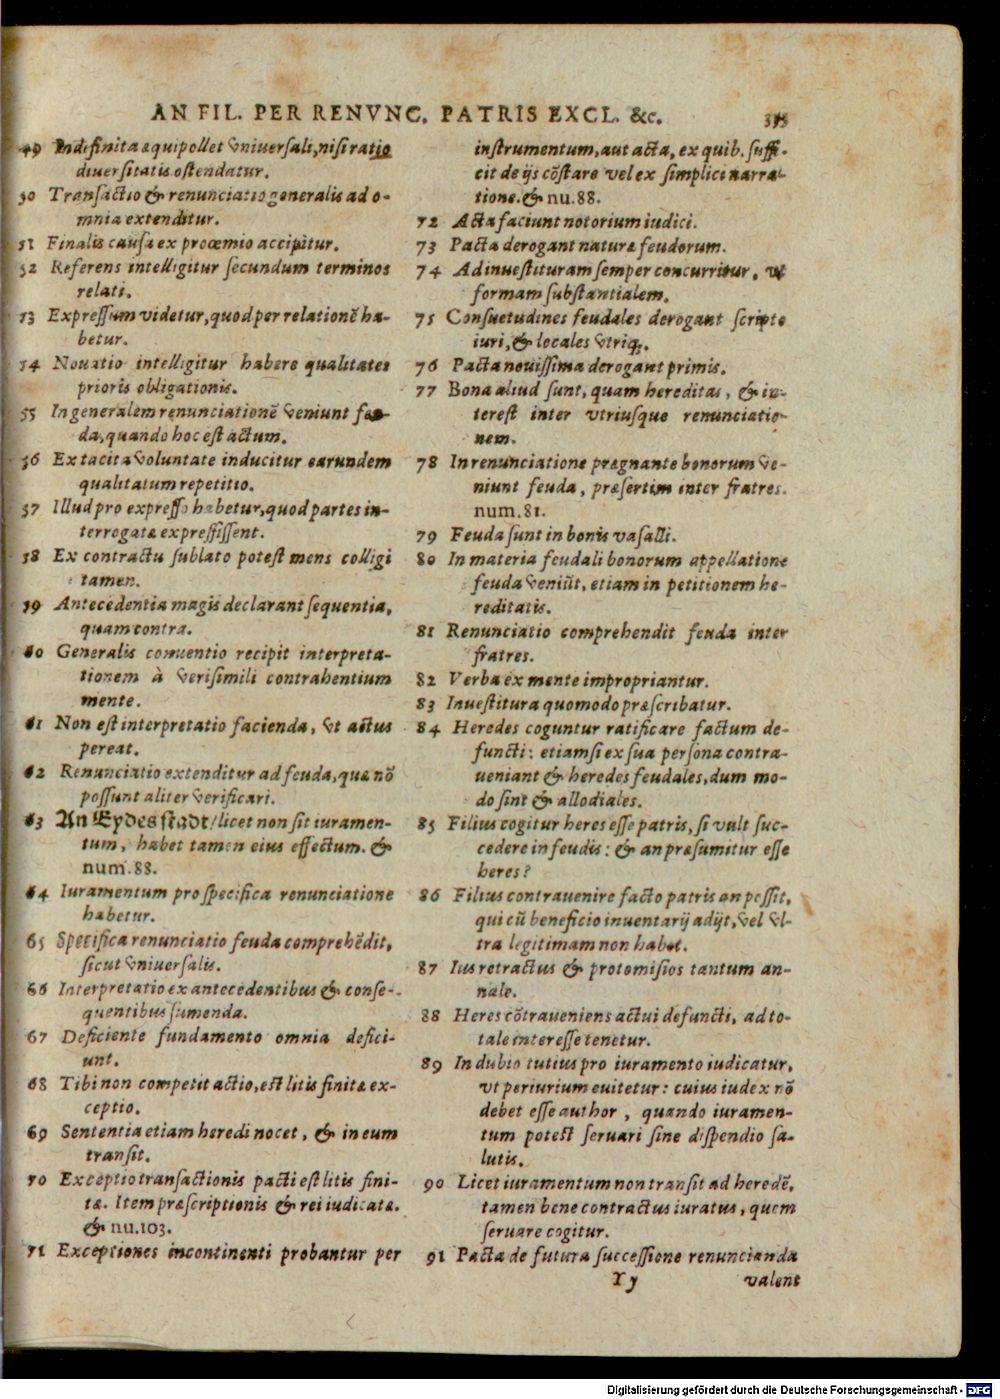 AN FIL. PER RENVNC. PATRIS EXCL. &c.
49 Indefinita æquipollet vniuersali, nisi ratio
diuersitatis ostendatur.
50 Transactio & renunciatio generalis ad o-
mnia extenditur.
51 Finalis causa ex proœmio accipitur.
52 Referens intelligitur secundum terminos
relati.
53 Expressum videtur, quod per relationẽ ha-
betur.
54 Nouatio intelligitur habere qualitates
prioris obligationis.
55 In generalem renunciationẽ veniunt feu-
da, quando hoc est actum.
56 Ex tacita voluntate inducitur earundem
qualitatum repetitio.
57 Illud pro expresso habetur, quod partes in-
terrogatæ expressissent.
58 Ex contractu sublato potest mens colligi
tamen.
59 Antecedentia magis declarant sequentia,
quam contra.
60 Generalis conuentio recipit interpreta-
tionem à verisimili contrahentium
mente.
61 Non est interpretatio facienda, vt actus
pereat.
62 Renunciatio extenditur ad feuda, quæ nõ
possunt aliter verificari.
63 An Eydes stadt/ licet non sit iuramen-
tum, habet tamen eius effectum. &
num. 88.
64 Iuramentum pro specifica renunciatione
habetur.
65 Specifica renunciatio feuda comprehẽdit,
sicut vniuersalis.
66 Interpretatio ex antecedentibus & conse-
quentibus sumenda.
67 Deficiente fundamento omnia defici-
unt.
68 Tibi non competit actio, est litis finitæ ex-
ceptio.
69 Sententia etiam heredi nocet, & in eum
transit.
70 Exceptio transactionis pacti est litis fini-
tæ. Item præscriptionis & rei iudicatæ.
& nu. 103.
71 Exceptiones incontinenti probantur per
instrumentum, aut acta, ex quib. suffi-
cit de ijs cõstare vel ex simplici narra-
tione. & nu. 88.
72 Acta faciunt notorium iudici.
73 Pacta derogant naturæ feudorum.
74 Ad inuestituram semper concurritur, vt
formam substantialem.
75 Consuetudines feudales derogant scripto
iuri, & locales vtriq;.
76 Pacta nouissima derogant primis.
77 Bona aliud sunt, quam hereditas, & in-
terest inter vtriusque renunciatio-
nem.
78 In renunciatione prægnante bonorum ve-
niunt feuda, præsertim inter fratres.
num. 81.
79 Feuda sunt in bonis vasalli.
80 In materia feudali bonorum appellatione
feuda veniũt, etiam in petitionem he-
reditatis.
81 Renunciatio comprehendit feuda inter
fratres.
82 Verba ex mente impropriantur.
83 Inuestitura quomodo præscribatur.
84 Heredes coguntur ratificare factum de-
functi: etiamsi ex sua persona contra-
ueniant & heredes feudales, dum mo-
do sint & allodiales.
85 Filius cogitur heres esse patris, si vult suc-
cedere in feudis: & an præsumitur esse
heres?
86 Filius contrauenire facto patris an possit,
qui cũ beneficio inuentarij adijt, vel vl-
tra legitimam non habet.
87 Ius retractus & protomisios tantum an-
nale.
88 Heres cõtraueniens actui defuncti, ad to-
tale interesse tenetur.
89 In dubio tutius pro iuramento iudicatur,
vt periurium euitetur: cuius iudex nõ
debet esse author, quando iuramen-
tum potest seruari sine dispendio sa-
lutis.
90 Licet iuramentum non transit ad heredẽ,
tamen bene contractus iuratus, quem
seruare cogitur.
91 Pacta de futura successione renuncianda
Y y valent
Digitalisierung gefördert durch die Deutsche Forschungsgemeinschaft - DFG